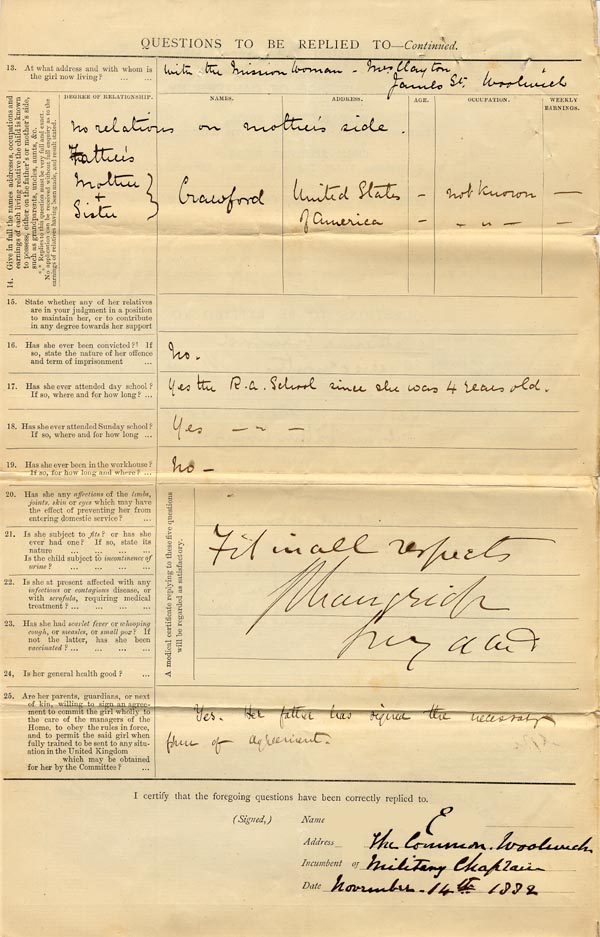 QUESTIONS TO BE REPLIED TO—Continued.
13. At what address and with whom is
the girl now living? ... ...
with the Mission Woman – Mrs Clayton
James St. Woolwich
14. Give in full the names addresses, occupations and
earnings of each living relative the child is known
to possess, either on the father's or mother's side,
such as grandparents, uncles, aunts, &c.
*** Replies to this question must be very full and exact.
No application can be received without full enquiry as to the
earnings of relatives having been made, and result stated.
DEGREE OF RELATIONSHIP. NAMES. ADDRESS. AGE. OCCUPATION. WEEKLY EARNINGS.
No relations on mother's side.
Father's
Mother
+
Sister
Crawford United States – not known –
of America – – " – –
15. State whether any of her relatives
are in your judgment in a position
to maintain her, or to contribute
in any degree towards her support
16. Has she ever been convicted?† If
so, state the nature of her offence
and term of imprisonment ...
No.
17. Has she ever attended day school?
If so, where and for how long? ...
Yes the R.A. School since she was 4 years old.
18. Has she ever attended Sunday school?
If so, where and for how long ...
Yes – " –
19. Has she ever been in the workhouse?
If so, for how long and where? ...
No –
20. Has she any affections of the limbs,
joints, skin or eyes which may have
the effect of preventing her from
entering domestic service? ...
21. Is she subject to fits? or has she
ever had one? If so, state its
nature ... ... ... ...
Is the child subject to incontinence of
urine? ... ... ... ...
22. Is she at present affected with any
infectious or contagious disease, or
with scrofula, requiring medical
treatment? ... ... ... ...
23. Has she had scarlet fever or whooping
cough, or measles, or small pox? If
not the latter, has she been
vaccinated? ... ... ... ...
24. Is her general health good? ...
A medical certificate replying to these five questions
will be regarded as satisfactory.
Fit in all respects
25. Are her parents, guardians, or next
of kin, willing to sign an agree-
ment to commit the girl wholly to
the care of the managers of the
Home, to obey the rules in force,
and to permit the said girl when
fully trained to be sent to any situ-
ation in the United Kingdom
which may be obtained
for her by the Committee? ...
Yes. Her father has signed the necessary
form of agreement.
I certify that the foregoing questions have been correctly replied to.
(Signed,) Name E
Address The Common. Woolwich
Incumbent of Military Chaplain
Date November 14th 1882